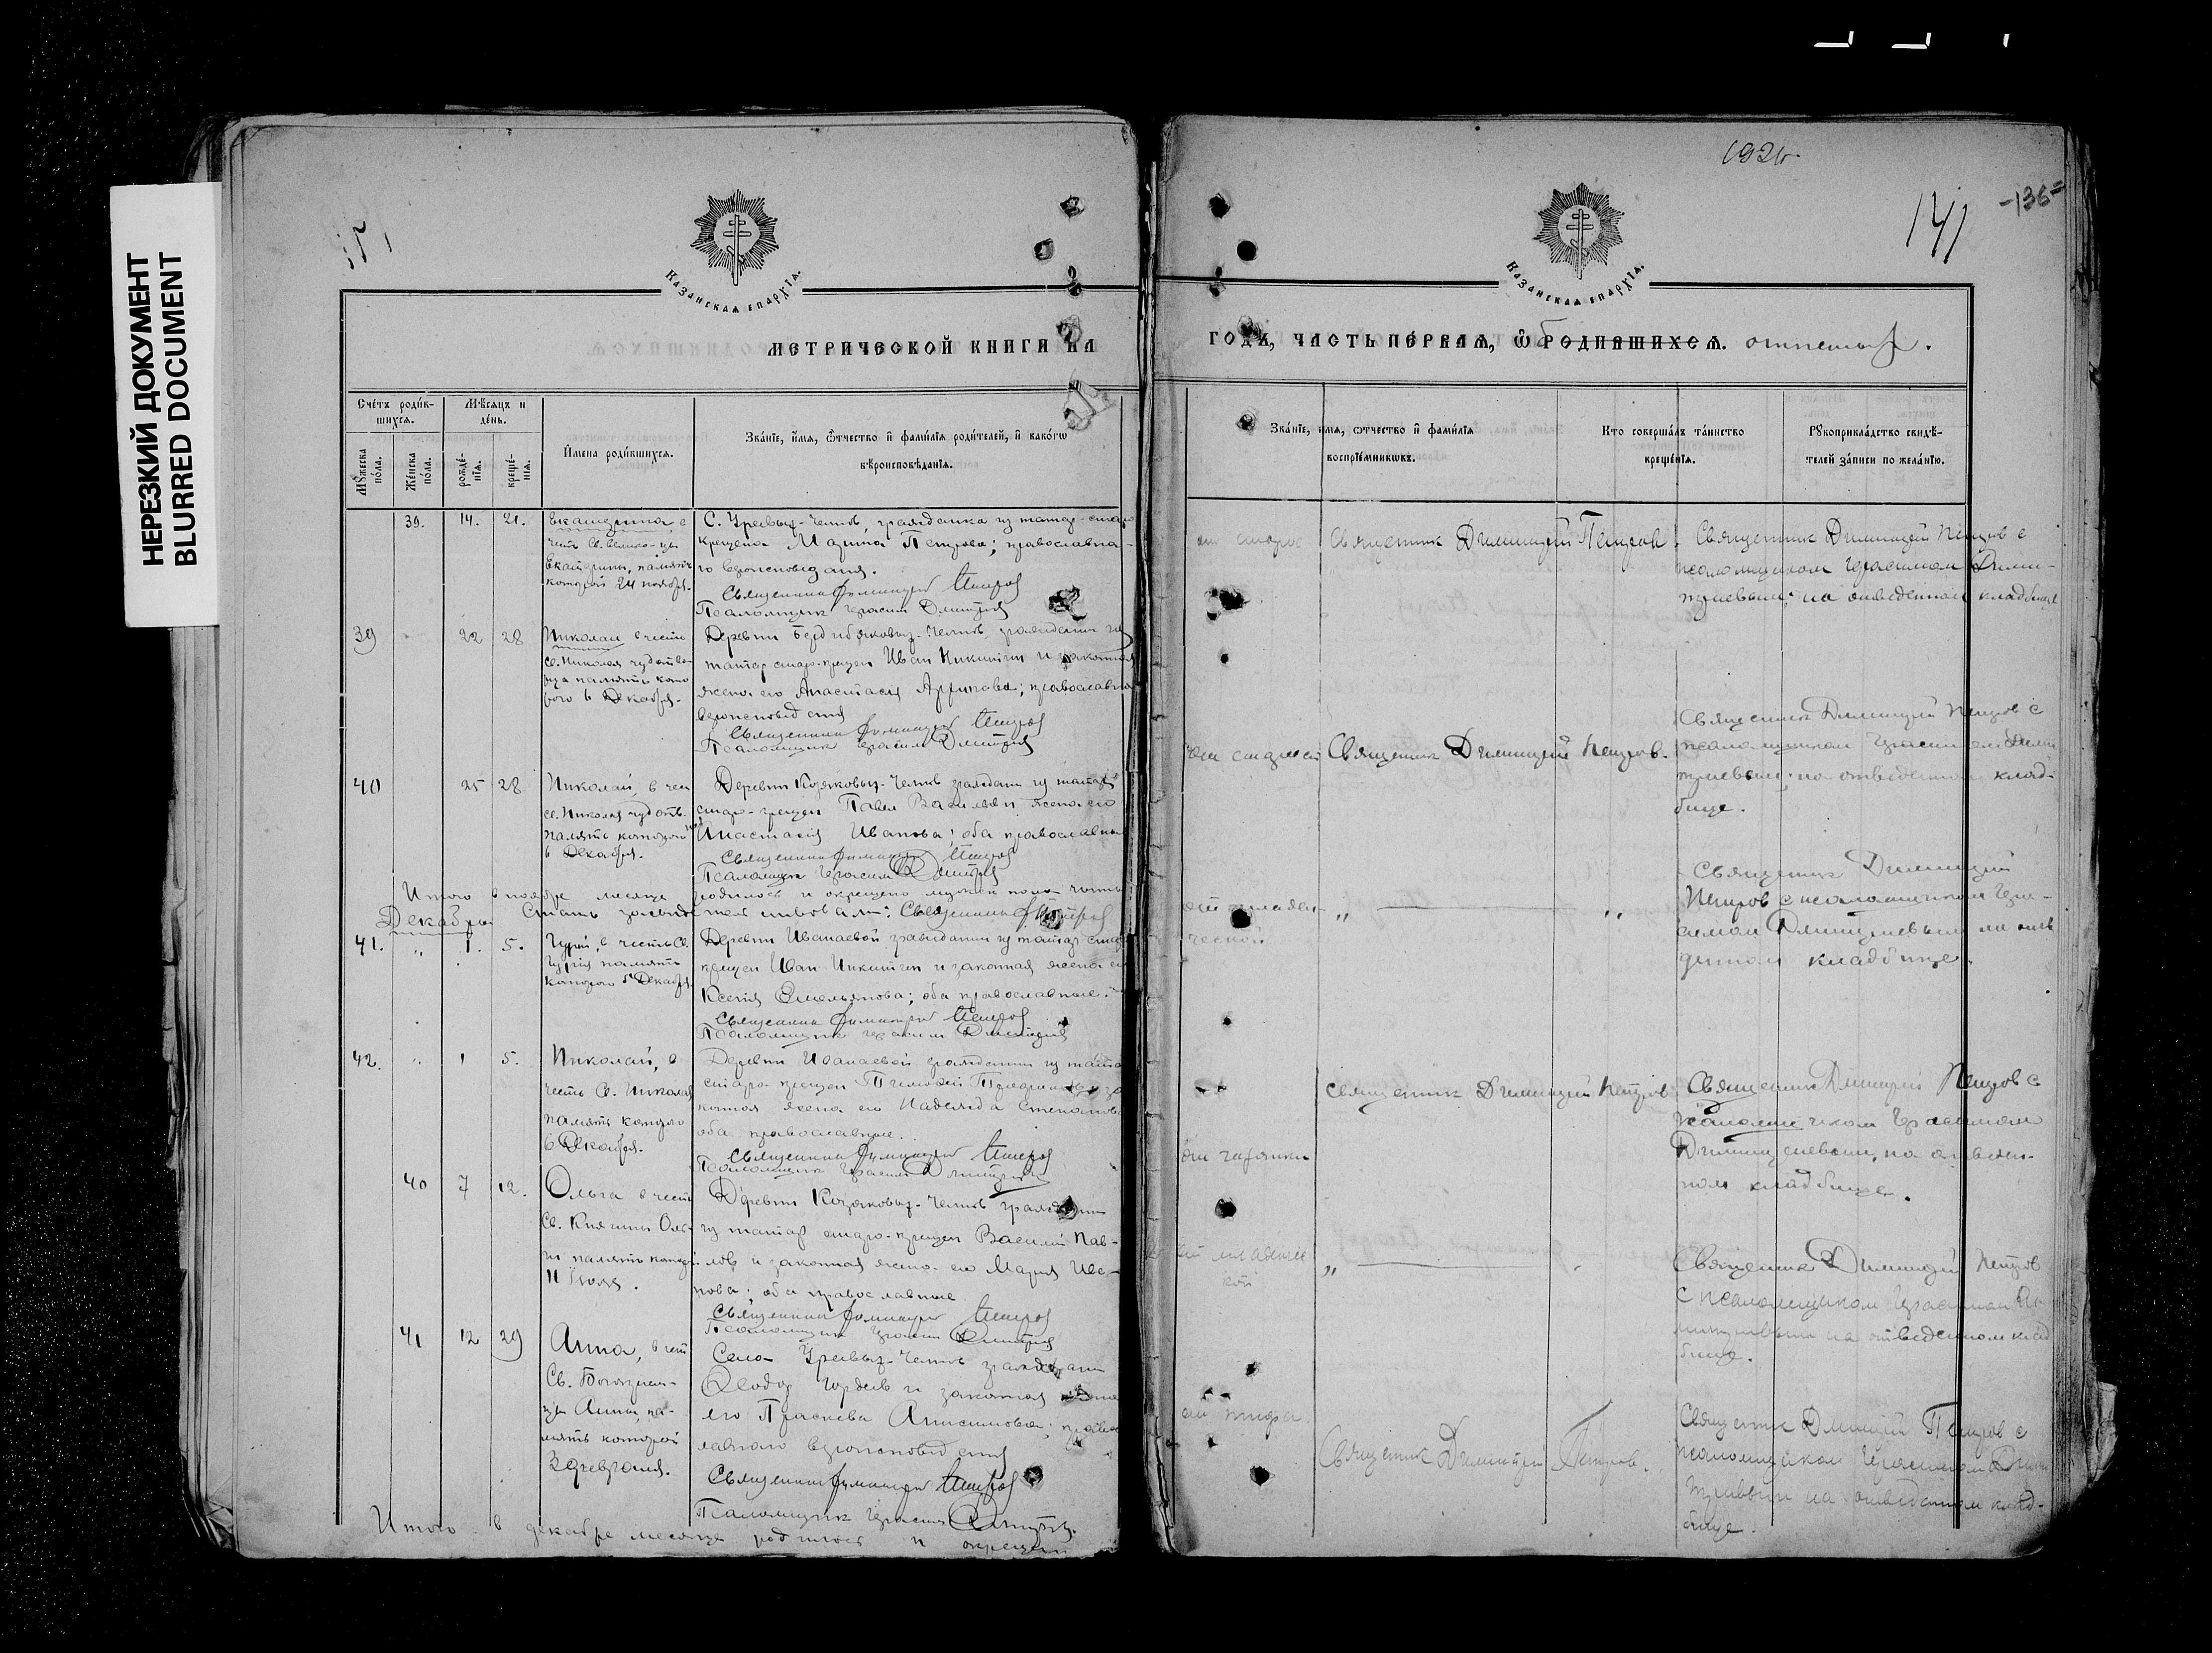 НЕРЕЗКИЙ ДОКУМЕНТ
BLURRED DOCUMENT
Казанская епархїя.
МЕТРИЧЕСКОЙ КНИГИ НА
Счётъ роди́вшихся.
Мѣсяцъ и де́нь.
Мꙋ́жеска по́ла.
Же́нска по́ла.
рожде́нїя.
креще́нїя.
И҆́мена роди́вшихся.
Зва́нїе, и҆́мя, ѻ҆́тчество и҆ фами́лїя роди́телей, и҆ како́гѡ
вѣроисповѣ́данїя.
39. 14. 21. Екатерина в
честь Св. Велико-цы
Екатерины, память
которой 24 ноября.
крещена Марина Петрова; православна-
го вероисповедания.
Священник Димитрий Петров
Псаломщик Герасим Дмитриев
39 22 28 Николай в честь
св. Николая чудотво-
рца память кото
рого 6 Декабря.
татар старо-крещен Иван Никитин и законная
жена его Анастасия; православна
вероисповедания
Священник Димитрий Петров
Псаломщик Герасим Дмитриев
40 25 28 Николай, в чес
св. Николая чудотв.
память которого
6 Декабря.
Деревни Козяковых-Челнов гражданин из татар
старо-крещен Павел Васильев и жена его
Анастасия Иванова; оба православные
Священник Димитрий Петров
Псаломщик Герасим Дмитриев
Итого в ноябре месяце родилось и окрещено мужск пола четыре
Декабрь
41. " 1. 5. Гурий, в честь Св.
Гурия память
которого 5 Декабря.
Деревни Иванаевой гражданин из татар старо
крещен Иван Никитин и законная жена его
Ксения Емельянова; оба православные.
Священник Димитрий Петров
Псаломщик Герасим Дмитриев
42. " 1 5. Николай, в
честь Св. Николая
память которого
6 Декабря.
Деревни Иванаевой гражданин из татар
старо-крещен Тимофей
жена его Надежда Степанова
оба православные.
Священник Димитрий Петров
Псаломщик Герасим Дмитриев
40 7 12. Ольга в честь
Св. Княгини Оль-
ги память которой
11 Июля.
Деревни Козяковых-Челнов гражданин
из татар старо-крещен Василий Пав-
лов и законная жена его Мария Ива-
нова; оба православные
Священник Димитрий Петров
Псаломщик Герасим Дмитриев
41 12 29 Анна, в чест
Св.
Анны, па-
мять которой
3 февраля.
Феодор Гордеев и законная жена
его Праскева Анисимова; правос
лавного вероисповедания
Священник Димитрий Петров
Псаломщик Герасим Дмитриев.
Итого в декабре месяце родилось и окрещено
1921г.
141
-136=
Казанская епархїя.
ГОДЪ, ЧАСТЬ ПЕРВАЯ, Ѡ РОДИВШИХСЯ.
Зва́нїе, и҆́мя, ѻ҆́тчество и҆ фами́лїя
воспрїе́мникѡвъ.
Кто соверша́лъ та́инство
креще́нїя.
Рꙋкоприкла́дство свидѣ́-
телей за́писи по жела́нїю.
Священник Димитрий Петров
Священник Димитрий Петров с
псаломщиком Герасимом Дими-
триевым; на отведенном кладбище
Священник Димитрий Петров.
Священник Димитрий Петров с
псаломщиком Герасимом Дими
триевым; на отведенном клад-
бище.
Священник Димитрий
Петров с псаломщиком Гера-
симом Димитриевым на отве
денном кладбище.
Священник Димитрий Петров
Священник Димитрий Петров с
псаломщиком Герасимом
Димитриевым, на отведен-
ном кладбище.
Священник Димитрий Петров
с псаломщиком Герасимом Ди-
митриевым на отведенном клад
бище.
от тифа.
Священник Димитрий Петров.
Священник Димитрий Петров с
псаломщиком Герасимом Дими
триевым на отведенном клад-
бище.